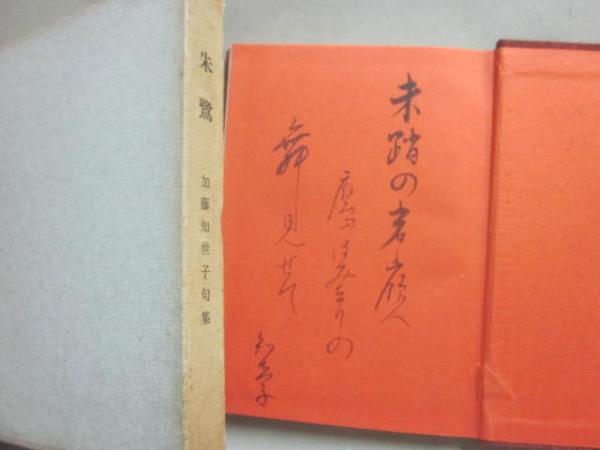 朱鷺 加藤知世子句集
未踏の
鷹はみどりの
舞見せて
知世子